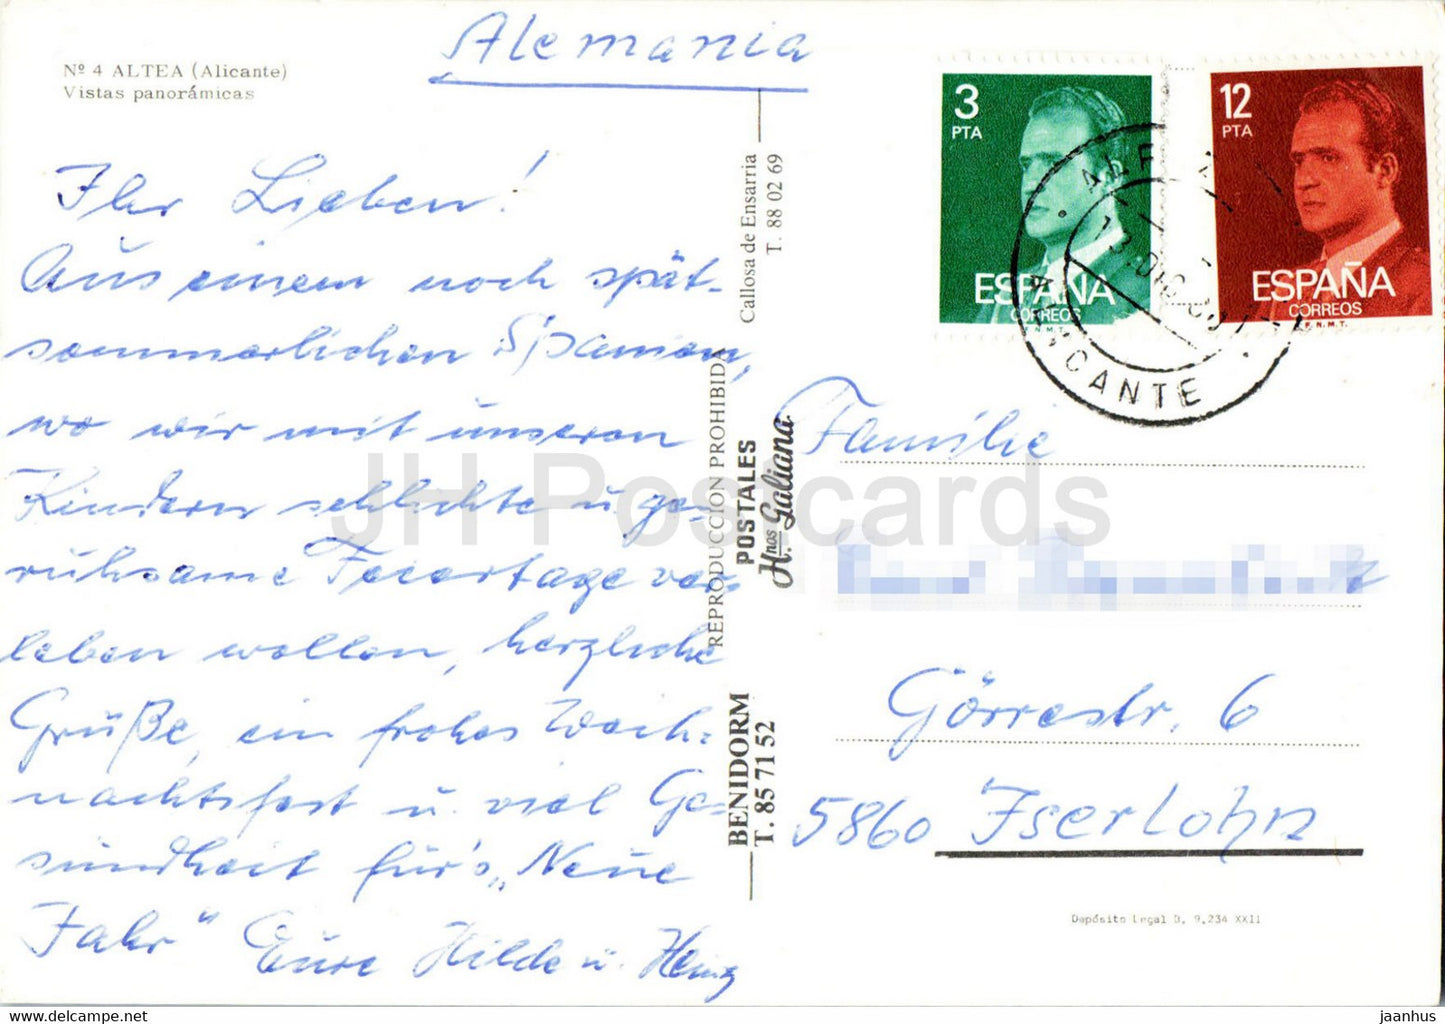 Alemania
Nº 4 ALTEA (Alicante)
Vistas panorámicas
Ihr Lieben!
Aus einem noch spät-
sommerlichen Spanien,
wo wir mit unseren
Kindern schlichte u. ge-
ruhsame Feiertage ver-
leben wollen, herzliche
Grüße, ein frohes Weih-
nachtsfest u. viel Ge-
sundheit für's „Neue
Jahr" Eure Hilde u. Heinz
Callosa de Ensarria
T. 88 02 69
REPRODUCCION PROHIBIDA
POSTALES
Hnos Galiana
BENIDORM
T. 85 71 52
3
PTA
ESPAÑA
CORREOS
F.N.M.T.
12
PTA
ESPAÑA
CORREOS
F.N.M.T.
ALICANTE
Familie
Görrestr. 6
5860 Iserlohn
Depósito Legal B. 9.234 XXII
JH Postcards
https://www.jhpostcards.com
jaanhus